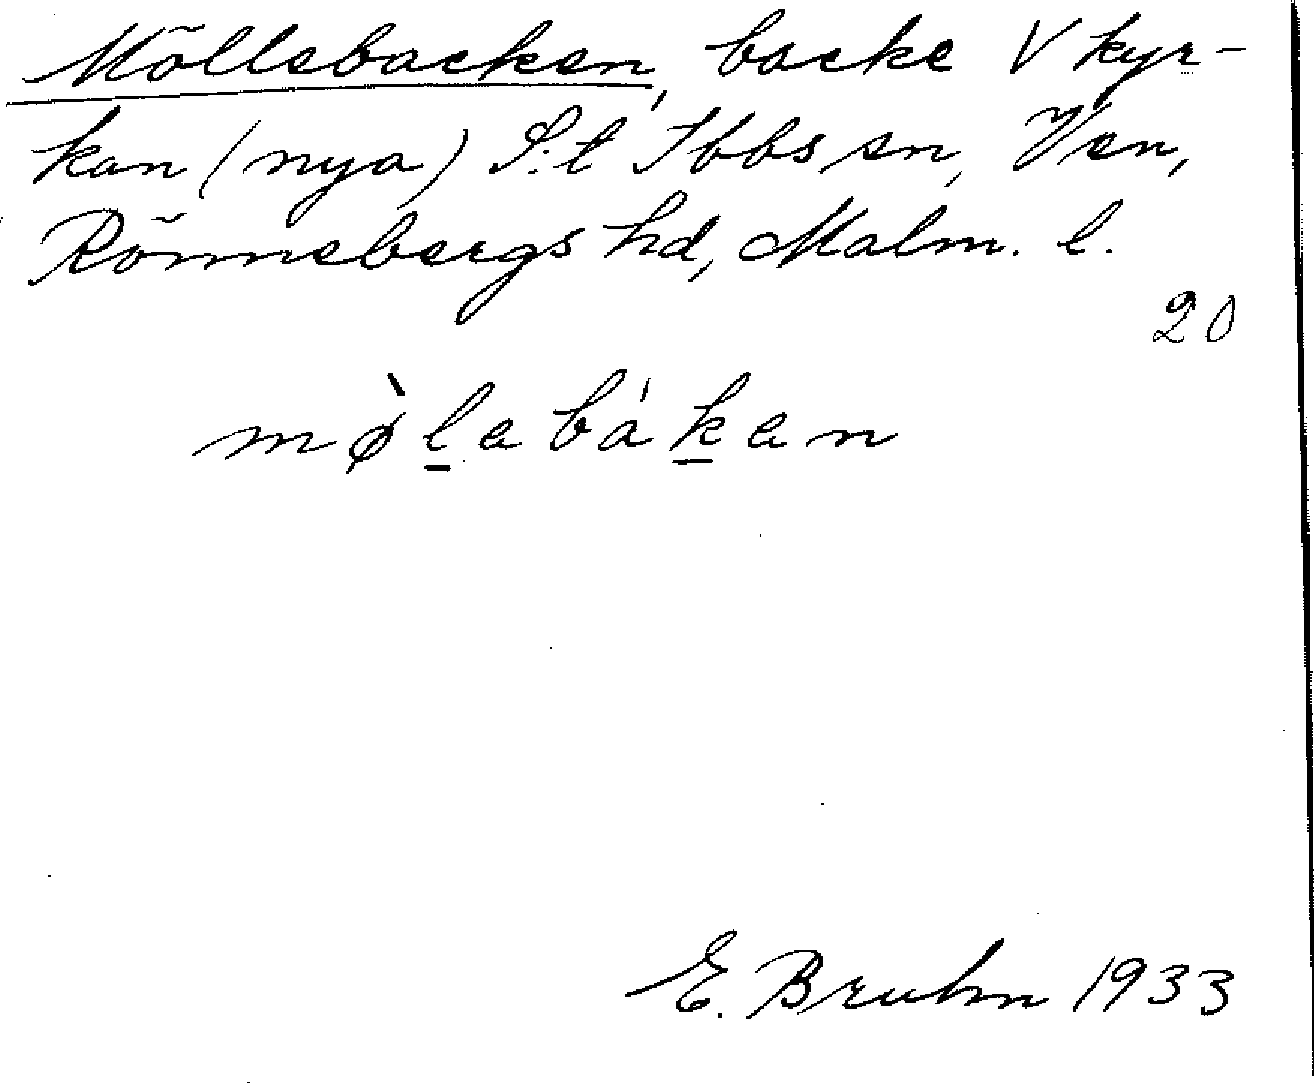 Möllebacken, backe V kyr-
kan (nya) S:t Ibbs sn, Ven,
Rönnebergs hd, Malm. l.
20
mø̀l̲ebák̲en
E. Bruhn 1933